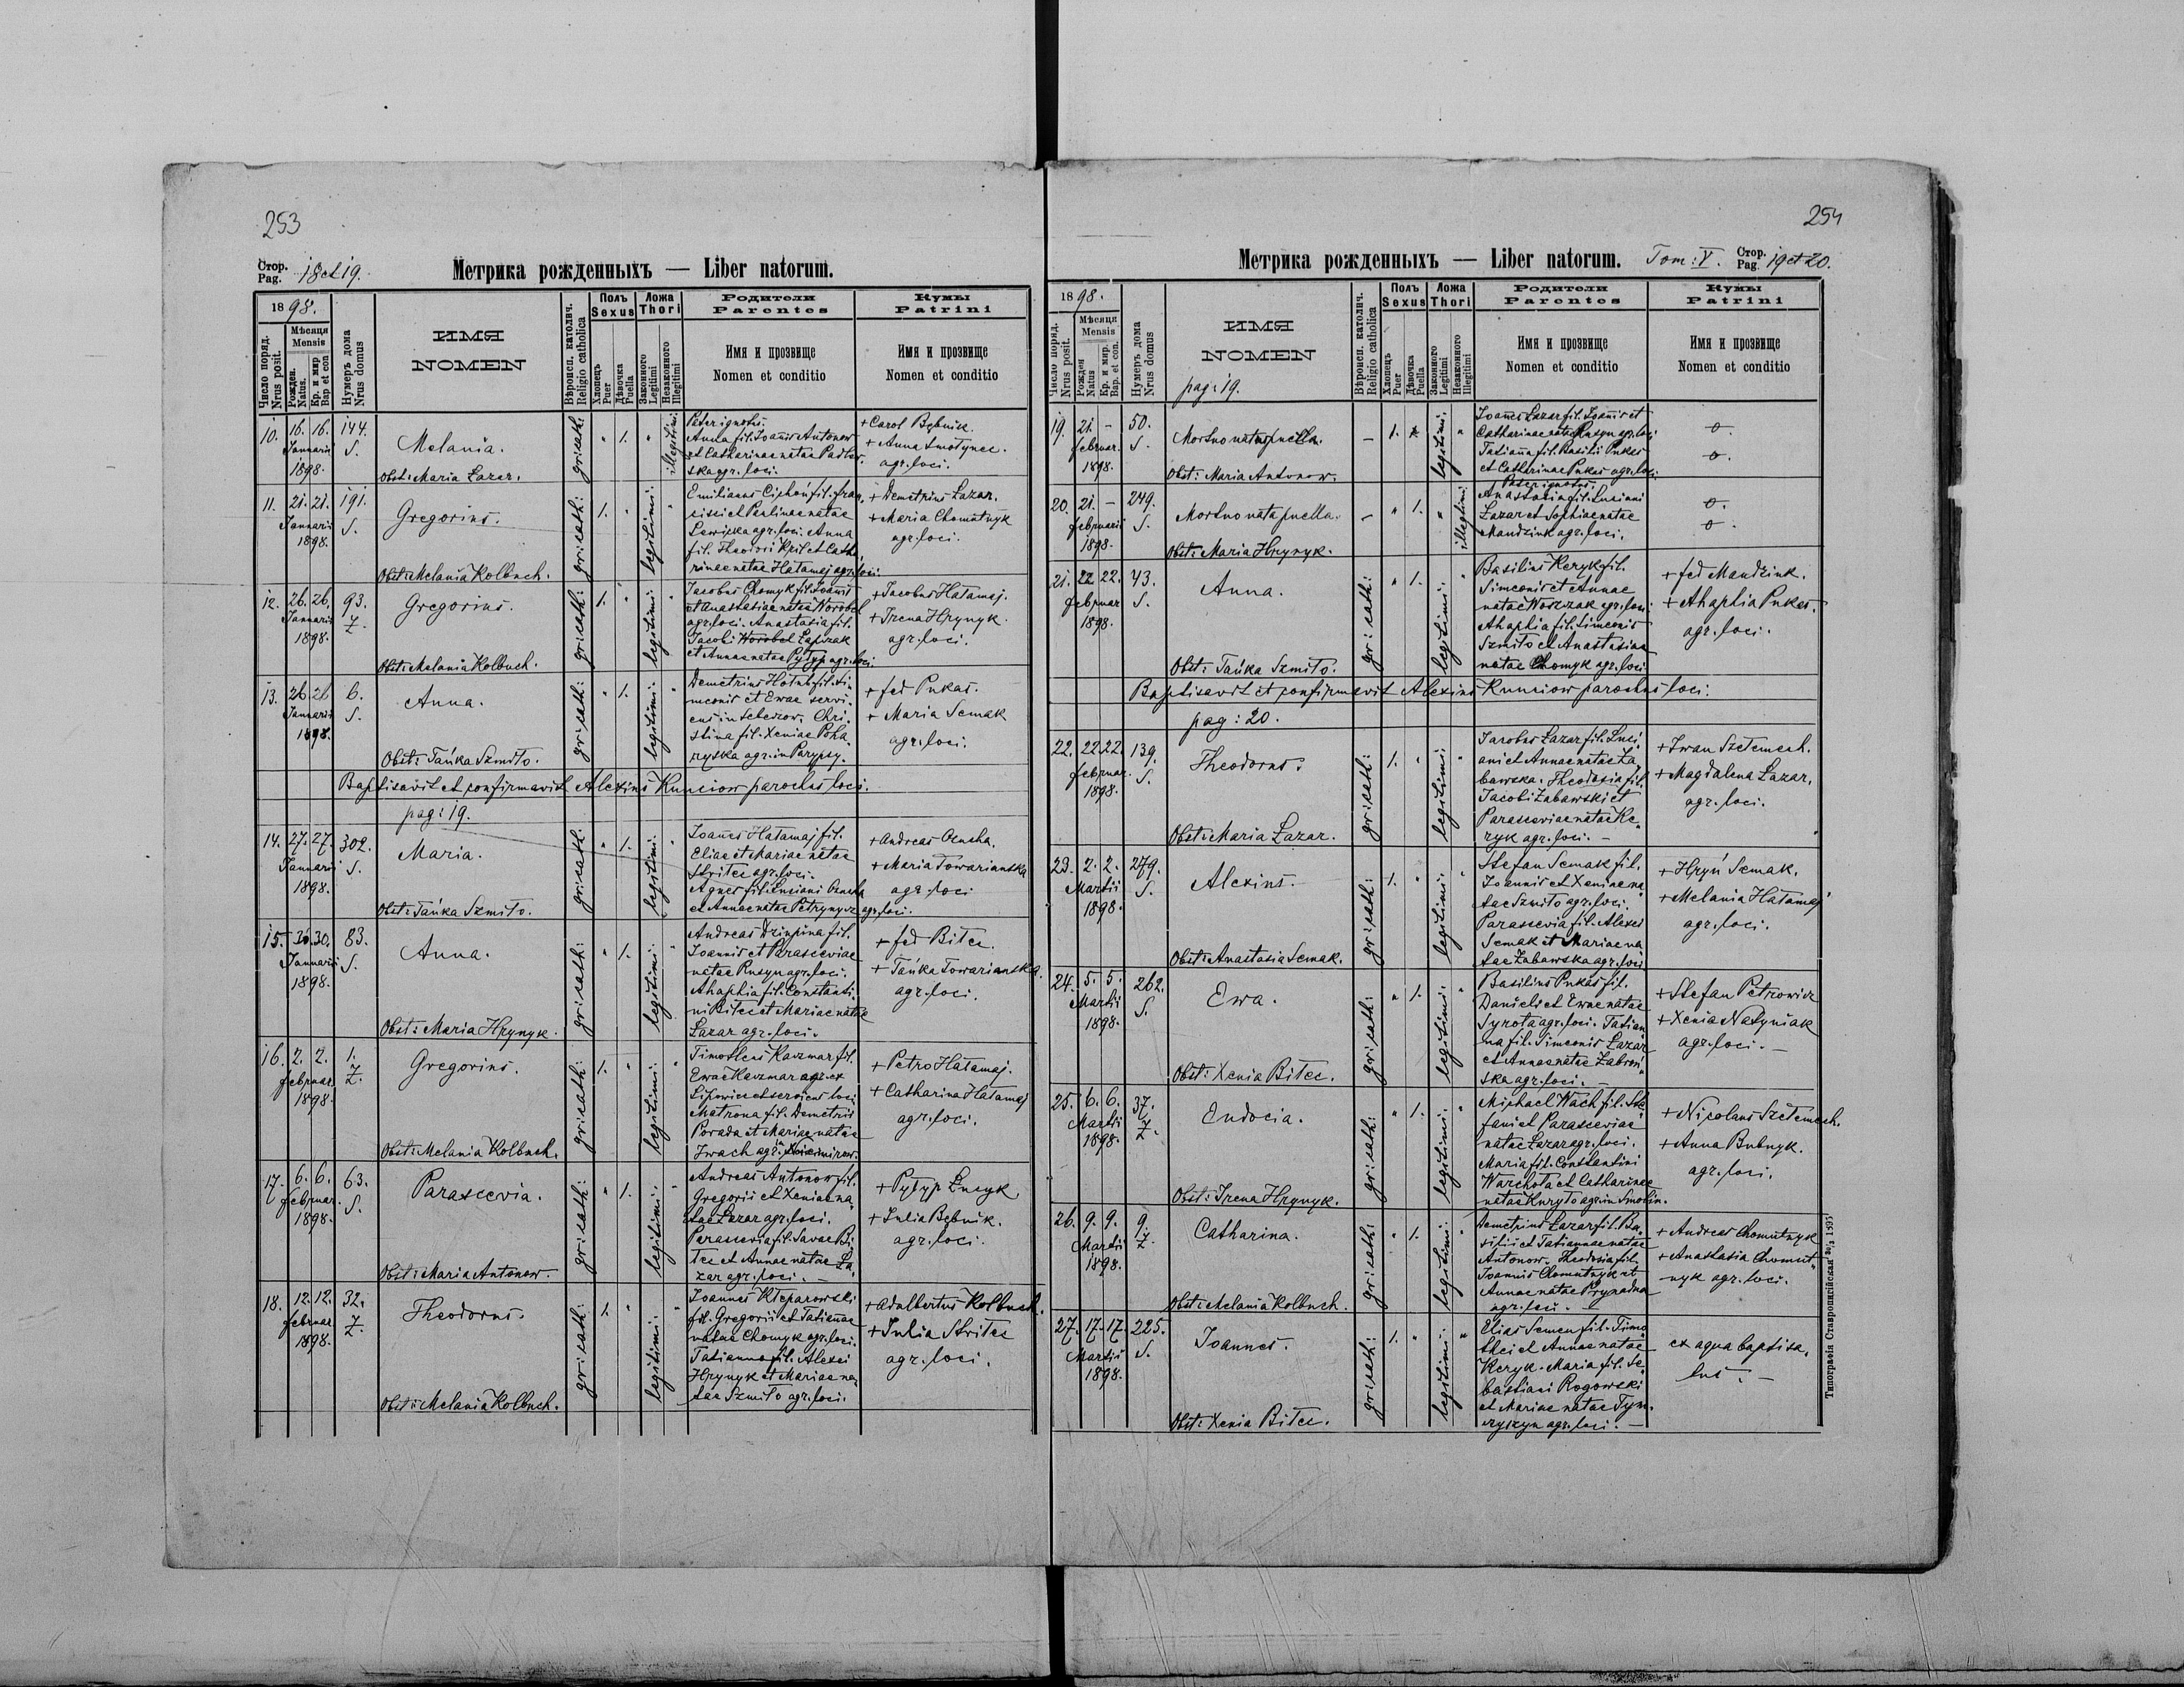 253
Стор.
Pag. 18 et 19.
Метрика рожденныхъ — Liber natorum.
1898.
Число поряд.
Nrus posit.
Мѣсяця
Mensis
Рожден.
Natus.
Кр. и мир
Bap et con
Нумеръ дома
Nrus domus
ИМЯ
NOMEN
Вѣроисп. католич.
Religio catholica
Полъ
Sexus
Хлопець
Puer
Дѣвочка
Puella
Ложа
Thori
Законного
Legitimi
Незаконного
Illegitimi
Родители
Parentes
Имя и прозвище
Nomen et conditio
Кумы
Patrini
Имя и прозвище
Nomen et conditio
10. 16. 16. 144.
Januarii S.
1898.
Melania.
Obst: Maria Lazar.
gr: cath: " 1. " illegitimi:
Pater ignotus.
Anna fil. Joannis Antonow
et Catharinae natae
agr. loci.
+ Carol Bębnik.
+ Anna Smotynec.
agr. loci.
11. 21. 21. 191.
Januarii S.
1898.
Gregorius.
Obst: Melania Kolbuch.
gr: cath: 1. " legitimi: "
Emilianus Ciphoń fil. Fran
cisci et Paulinae natae
Lewicka agr. loci. Anna
fil. Theodorii Kril et Catha
rinae natae Hatamaj agr. loci.
+ Demetrius Lazar.
+ Maria Chomutnyk
agr. loci.
12. 26. 26. 93.
Januarii Z.
1898.
Gregorius.
Obst: Melania Kolbuch.
gr: cath: 1. " legitimi: "
Jacobus Chomyk fil. Joannis
et Anastasiae natae Worobel
agr. loci. Anastasia fil.
Jacobi Worobel Lapczak
et Annae natae Pytyp agr. loci
+ Jacobus Hatamaj.
+ Irena Hrynyk.
agr. loci.
13. 26 26 6.
Januarii S.
1898.
Anna.
Obst: Tańka Szmito.
gr: cath: " 1. legitimi: "
Demetrius Hotub fil. Si
meonis et Ewae servi
ens in Scheszow. Chri
stina fil. Xeniae Poha
ryska agr. in Parypsy.
+ Fed Pukas.
+ Maria Semak
agr. loci.
Baptisavit et confirmavit Alexius Kunciow parochus loci.
pag: 19.
14. 27. 27. 302.
Januarii S.
1898.
Maria.
Obst: Tańka Szmito.
gr: cath: " 1. legitimi: "
Joannes Hatamaj fil.
Eliae et Mariae natae
Stritec agr. loci.
Agnes fil. Luciani Ocneha
et Annae natae Petrynycz agr. loci.
+ Andreas Ocneha.
+ Maria Towarianska
agr. loci
15. 30. 30. 83.
Januarii S.
1898.
Anna.
Obst: Maria Hrynyk.
gr: cath: " 1. legitimi: "
Andreas Dziupina fil.
Joannis et Parasceviae
natae Rusyn agr. loci.
Ahaphia fil. Constanti
ni Bitec et Mariae natae
Lazar agr. loci.
+ Fed Bitec.
+ Tańka Towarianska.
agr. loci.
16. 2. 2. 1.
Februar. Z.
1898.
Gregorius.
Obst: Melania Kolbuch.
gr: cath: 1. " legitimi: "
Timotheus Kaczmar fil.
Ewae Kaczmar agr. ex
Lipowiec et serviens loci
Matrona fil. Demetrii
Porada et Mariae natae
Iwach agr. in
+ Petro Hatamaj.
+ Catharina Hatamaj
agr. loci.
17. 6. 6. 63.
Februar. S.
1898.
Parascevia.
Obst: Maria Antonow.
gr: cath: " 1. legitimi: "
Andreas Antonow fil.
Gregorii et Xeniae na
tae Lazar agr. loci.
Parascevia fil. Savae Bi
tec et Annae natae La
zar agr. loci. —
+ Pytyp Lucyk
+ Julia Bębnik.
agr. loci.
18. 12. 12. 32.
Februar. Z.
1898.
Theodorus.
Obst: Melania Kolbuch.
gr: cath: 1. " legitimi: "
Joannes Kteparowski
fil. Gregorii et Tatiannae
natae Chomyk agr. loci.
Tatianna fil. Alexei
Hrynyk et Mariae na
tae Szmito agr. loci.
+ Adalbertus Kolbuch.
+ Julia Stritec
agr. loci.
254
Метрика рожденныхъ — Liber natorum. Tom: V. Стор.
Pag. 19 et 20.
1898.
Число поряд.
Nrus posit.
Мѣсяця
Mensis
Рожден
Natus
Кр. и мир.
Bap. et con.
Нумеръ дома
Nrus domus
ИМЯ
NOMEN
pag: 19.
Вѣроисп. католич.
Religio catholica
Полъ
Sexus
Хлопець
Puer
Дѣвочка
Puella
Ложа
Thori
Законного
Legitimi
Незаконного
Illegitimi
Родители
Parentes
Имя и прозвище
Nomen et conditio
Кумы
Patrini
Имя и прозвище
Nomen et conditio
19. 21. - 50.
Februar. S.
1898.
Mortuo nata puella.
Obst: Maria Antonow.
— 1. legitimi: "
Joannes Lazar fil. Joannis et
Catharinae natae Rusyn agr. loci
Tatianna fil. Basilii Pukas
et Catharinae Pukas agr. loci.
o.
o.
20. 21. - 249.
Februarii S.
1898.
Mortuo nata puella.
Obst: Maria Hrynyk.
— " 1. " illegitimi:
Pater ignotus.
Anastasia fil. Luciani
Lazar et Sophiae natae
Mandziuk agr. loci.
o.
o.
21. 22 22. 43.
Februar. S.
1898.
Anna.
Obst: Tańka Szmito.
gr: cath: " 1. legitimi: "
Basilius Keryk fil.
Simeonis et Annae
natae Woszczak agr. loci
Ahaphia fil. Simeonis
Szmito et Anastasiae
natae Chomyk agr. loci
+ Fed Mandziuk.
+ Ahaphia Pukas.
agr. loci.
Baptisavit et confirmavit Alexius Kunciow parochus loci.
pag: 20.
22. 22 22. 139.
Februar. S.
1898.
Theodorus.
Obst: Maria Lazar.
gr: cath: 1. " legitimi: "
Jacobus Lazar fil. Luci
ani et Annae natae Za
bawska. Theodosia fil.
Jacobi Zabawski et
Parasceviae natae Ke
ryk agr. loci. —
+ Iwan Szetemech.
+ Magdalena Lazar.
agr. loci.
23. 2. 2. 279.
Martii S.
1898.
Alexius.
Obst: Anastasia Semak.
gr: cath: 1. " legitimi: "
Stefan Semak fil.
Joannis et Xeniae na
tae Szmito agr. loci.
Parascevia fil. Alexei
Semak et Mariae na
tae Zabawska agr. loci
+ Hryń Semak.
+ Melania Hatamaj
agr. loci.
24. 5. 5. 262.
Martii S.
1898.
Ewa.
Obst: Xenia Bitec.
gr: cath: " 1. legitimi: "
Basilius Pukas fil.
Danieli et Ewae natae
Syrota agr. loci. Tatian
na fil. Simeonis Lazar
et Annae natae
ska agr. loci. —
+ Stefan Petrowicz
+ Xenia Natyniak
agr. loci. —
25. 6. 6. 37.
Martii Z.
1898.
Eudocia.
Obst: Irena Hrynyk.
gr: cath: " 1. legitimi: "
Michael Wach fil. Ste
fani et Parasceviae
natae Lazar agr. loci.
Maria fil. Constantini
Warchota et Catharinae
natae Kuryto agr. in Smolin.
+ Nicolaus Szetemech.
+ Anna Bubnyk.
agr. loci.
26. 9. 9. 9.
Martii Z.
1898.
Catharina.
Obst: Melania Kolbuch.
gr: cath: " 1. legitimi: "
Demetrius Lazar fil. Ba
silii et Tatiannae natae
Antonow. Theodosia fil.
Joannis Chomutnyk et
Annae natae Prynadna
agr. loci. —
+ Andreas Chomutnyk
+ Anastasia Chomut
nyk agr. loci.
27. 17. 17. 225.
Martii S.
1898.
Joannes.
Obst: Xenia Bitec.
gr: cath: 1. " legitimi: "
Elias Semen fil. Timo
thei et Annae natae
Keryk. Maria fil. Se
bastiani Rogowski
et Mariae natae Tym
czyszyn agr. loci. —
ex aqua baptisa
tus. —
Типографія Ставропигійская